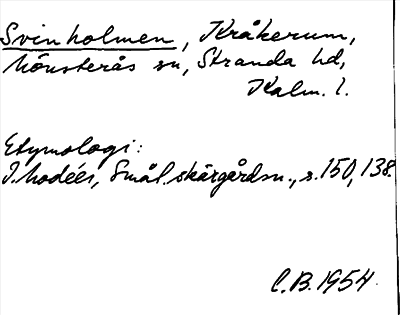 Svinholmen, Kråkerum,
Mönsterås sn, Stranda hd,
Kalm. l.
Etymologi:
I. Modéer, Smål. skärgårdsn., s. 150, 138.
C.B. 1954.